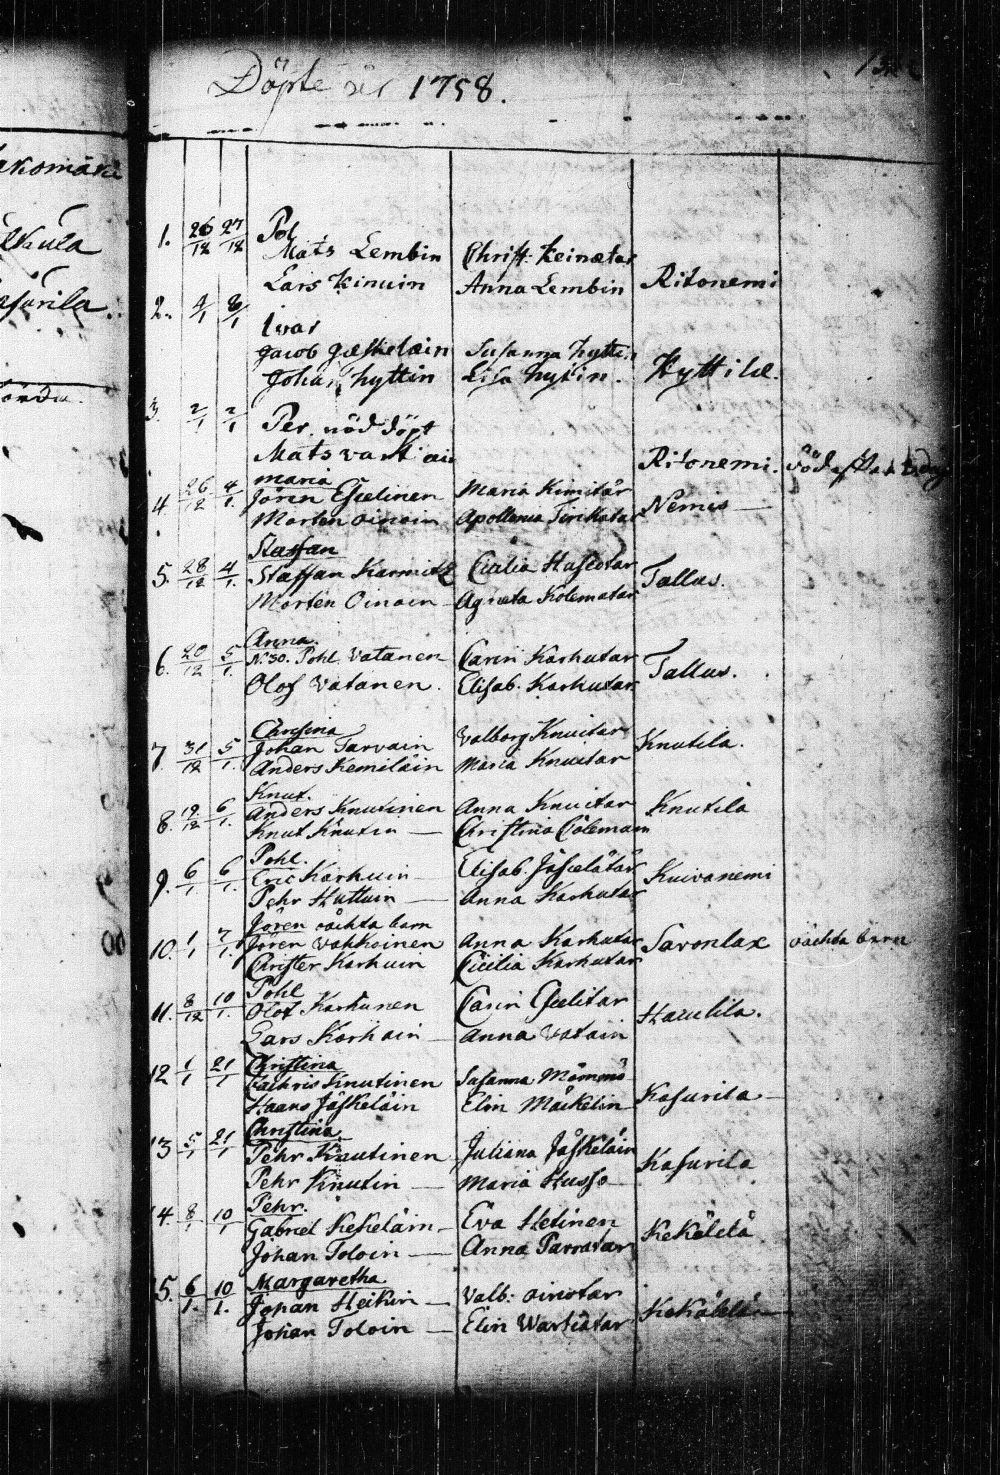 Döpte år 1758.
akomäki
lkula
asurila.
1. 26/12 27/12 Pol
Mats Lembin Christ: Keinetar
Lars Kinuin Anna Lembin Ritonemi
2. 4/1 6/1 Ivar
Jacob Jæskelæin Susanna Hyttin
Johan Hyttin Lisa Hyttin. Hyttilæ.
3. 2/1 2/1 Per. nöd döpt
Mats Ritonemi.
4. 26/12 4/1. Maria
Jören Eskelinen Maria Kimitär Nemis
Morten Oinoin Apollonia
5. 28/12 4/1. Staffan
Staffan Cicilia Tallus.
Morten Oinoin Agneta Kolematar
6. 20/12 5/1. Anna.
No. 30. Pohl Vatanen Carin Karhutar Tallus.
Olof Vatanen. Elisab. Karhutar
7. 31/12 5/1. Christina
Johan Tarvain Valborg Knuitar Knutila.
Anders Kemiläin Maria Knuitar
8. 19/12 6/1. Knut.
Anders Knutinen Anna Knuitar Knutila
Knut Knutin Christina Colemain
9. 6/1 6/1. Pohl.
Eric Karhuin Elisab. Kuivanemi
Pehr Huttuin Anna Karhutar
10. 1/1 7/1. Jören oächta barn
Jören Vokkoinen Anna Karhutar Savonlax oächta barn
Christer Karhuin Cicilia Karhutar
11. 8/12 10/1. Pohl
Olof Karhunen Carin Eskelitar Haulila.
Lars Karhain Anna Vatain
12 1/1 21/1 Christina
Zachris Knutinen Susanna Mömmö Kasurila
Haans Jäskeläin Elin Mäikelin
13 5/1 21/1 Christina
Pehr Knutinen Juliana Jäskeläin Kasurila
Pehr Knutin Maria Husso
14. 8/1 10/1 Pehr.
Gabriel Kekeläin Eva Hetinen Kekälelä
Johan Toloin Anna Parratar
15. 6/1. 10/1. Margaretha
Johan Heikin Valb: Oinotar Kekälelä
Johan Toloin Elin Wartiatar